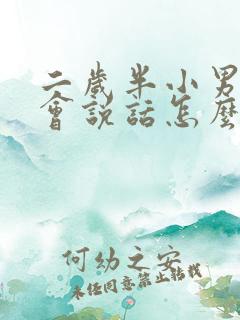 二歲半小男
會說話怎麼
何幼之安
未经同意禁止转载